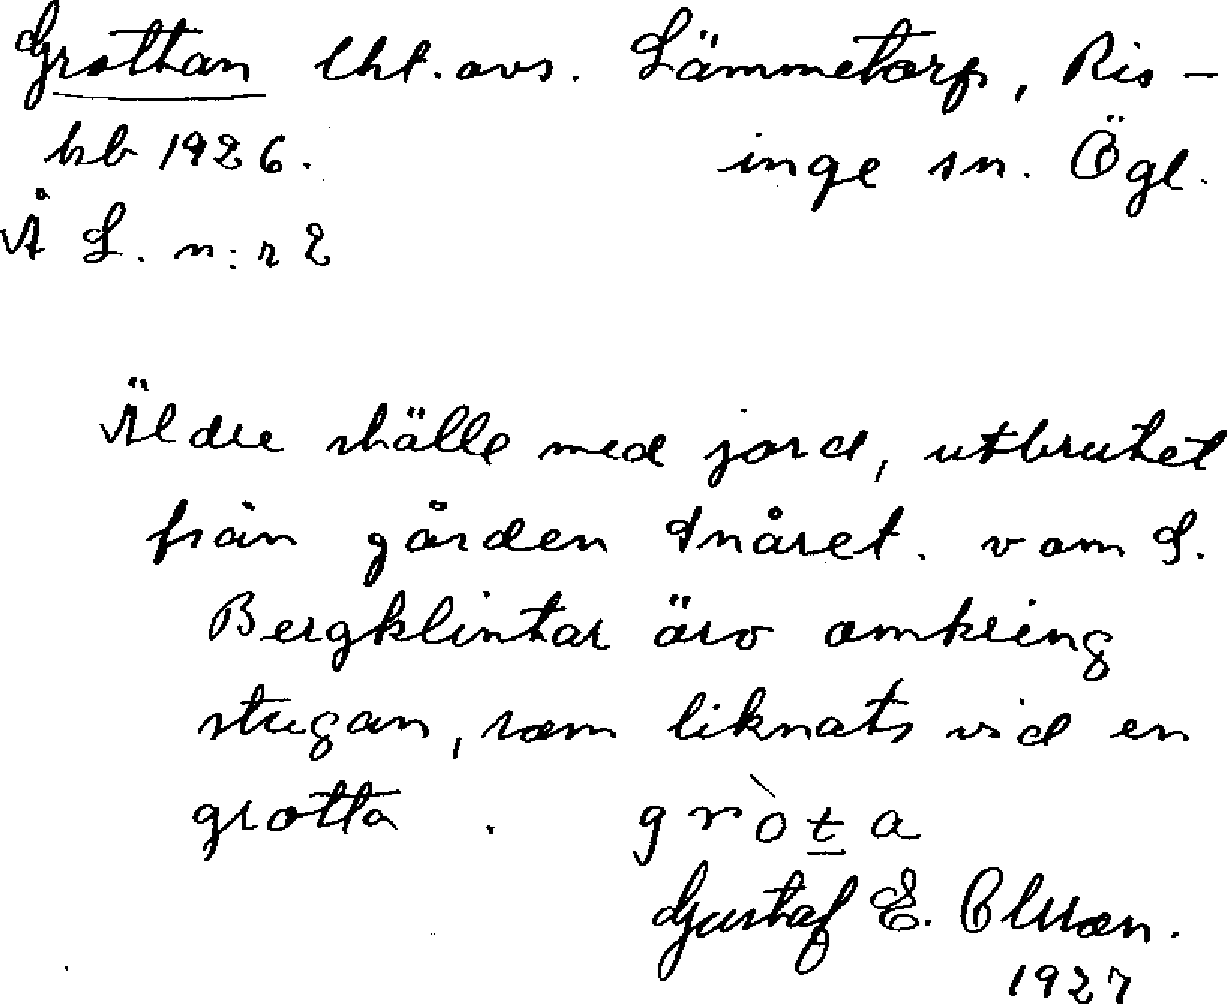 Grottan lht. avs. Lämmetorp, Ris-
kb 1926. inge sn. Ögl.
Å L. n:r 2
Äldre ställe med jord, utbrutet
från gården Snåret. v om L.
Bergklintar äro omkring
stugan, som liknats vid en
grotta. gròta
Gustaf E. Olsson.
1927